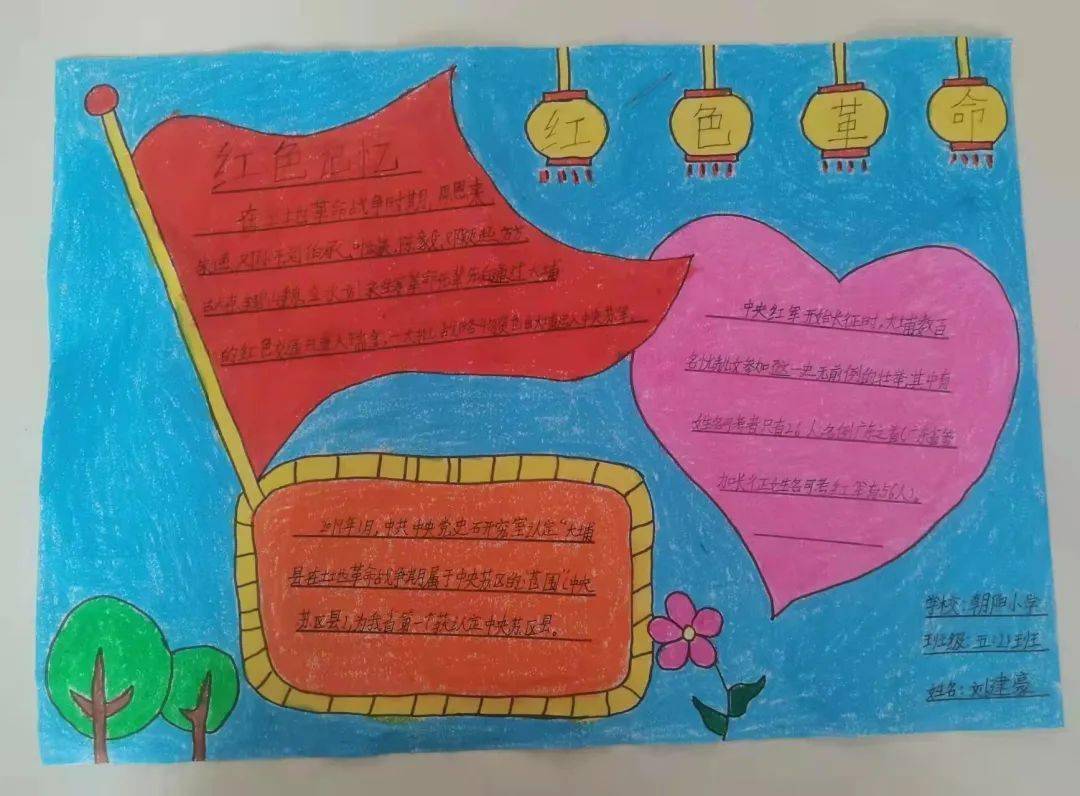 红色革命
红色记忆
在土地革命战争时期,周恩来
刘伯承,叶剑英,陈毅,邓颖超
革命先辈
的红色交通进入瑞金,一大批也由大埔进入中央苏区。
中央红军开始长征时,大埔数百
名优秀儿女参加了这一史无前例的壮举,其中有
姓名可考者只有26人,名列广东之首(广东省参
加长征姓名可考红军有56人)。
月,中共中央党史研究室认定"大埔
县在土地革命战争期属于中央苏区的范围"(中央
苏区县)为我省第一个获认定中央苏区县。
学校:朝阳小学
班级:五(2)班
姓名:刘建豪